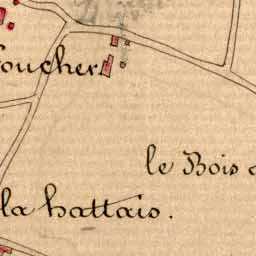 foucher
le Bois
la hattais.